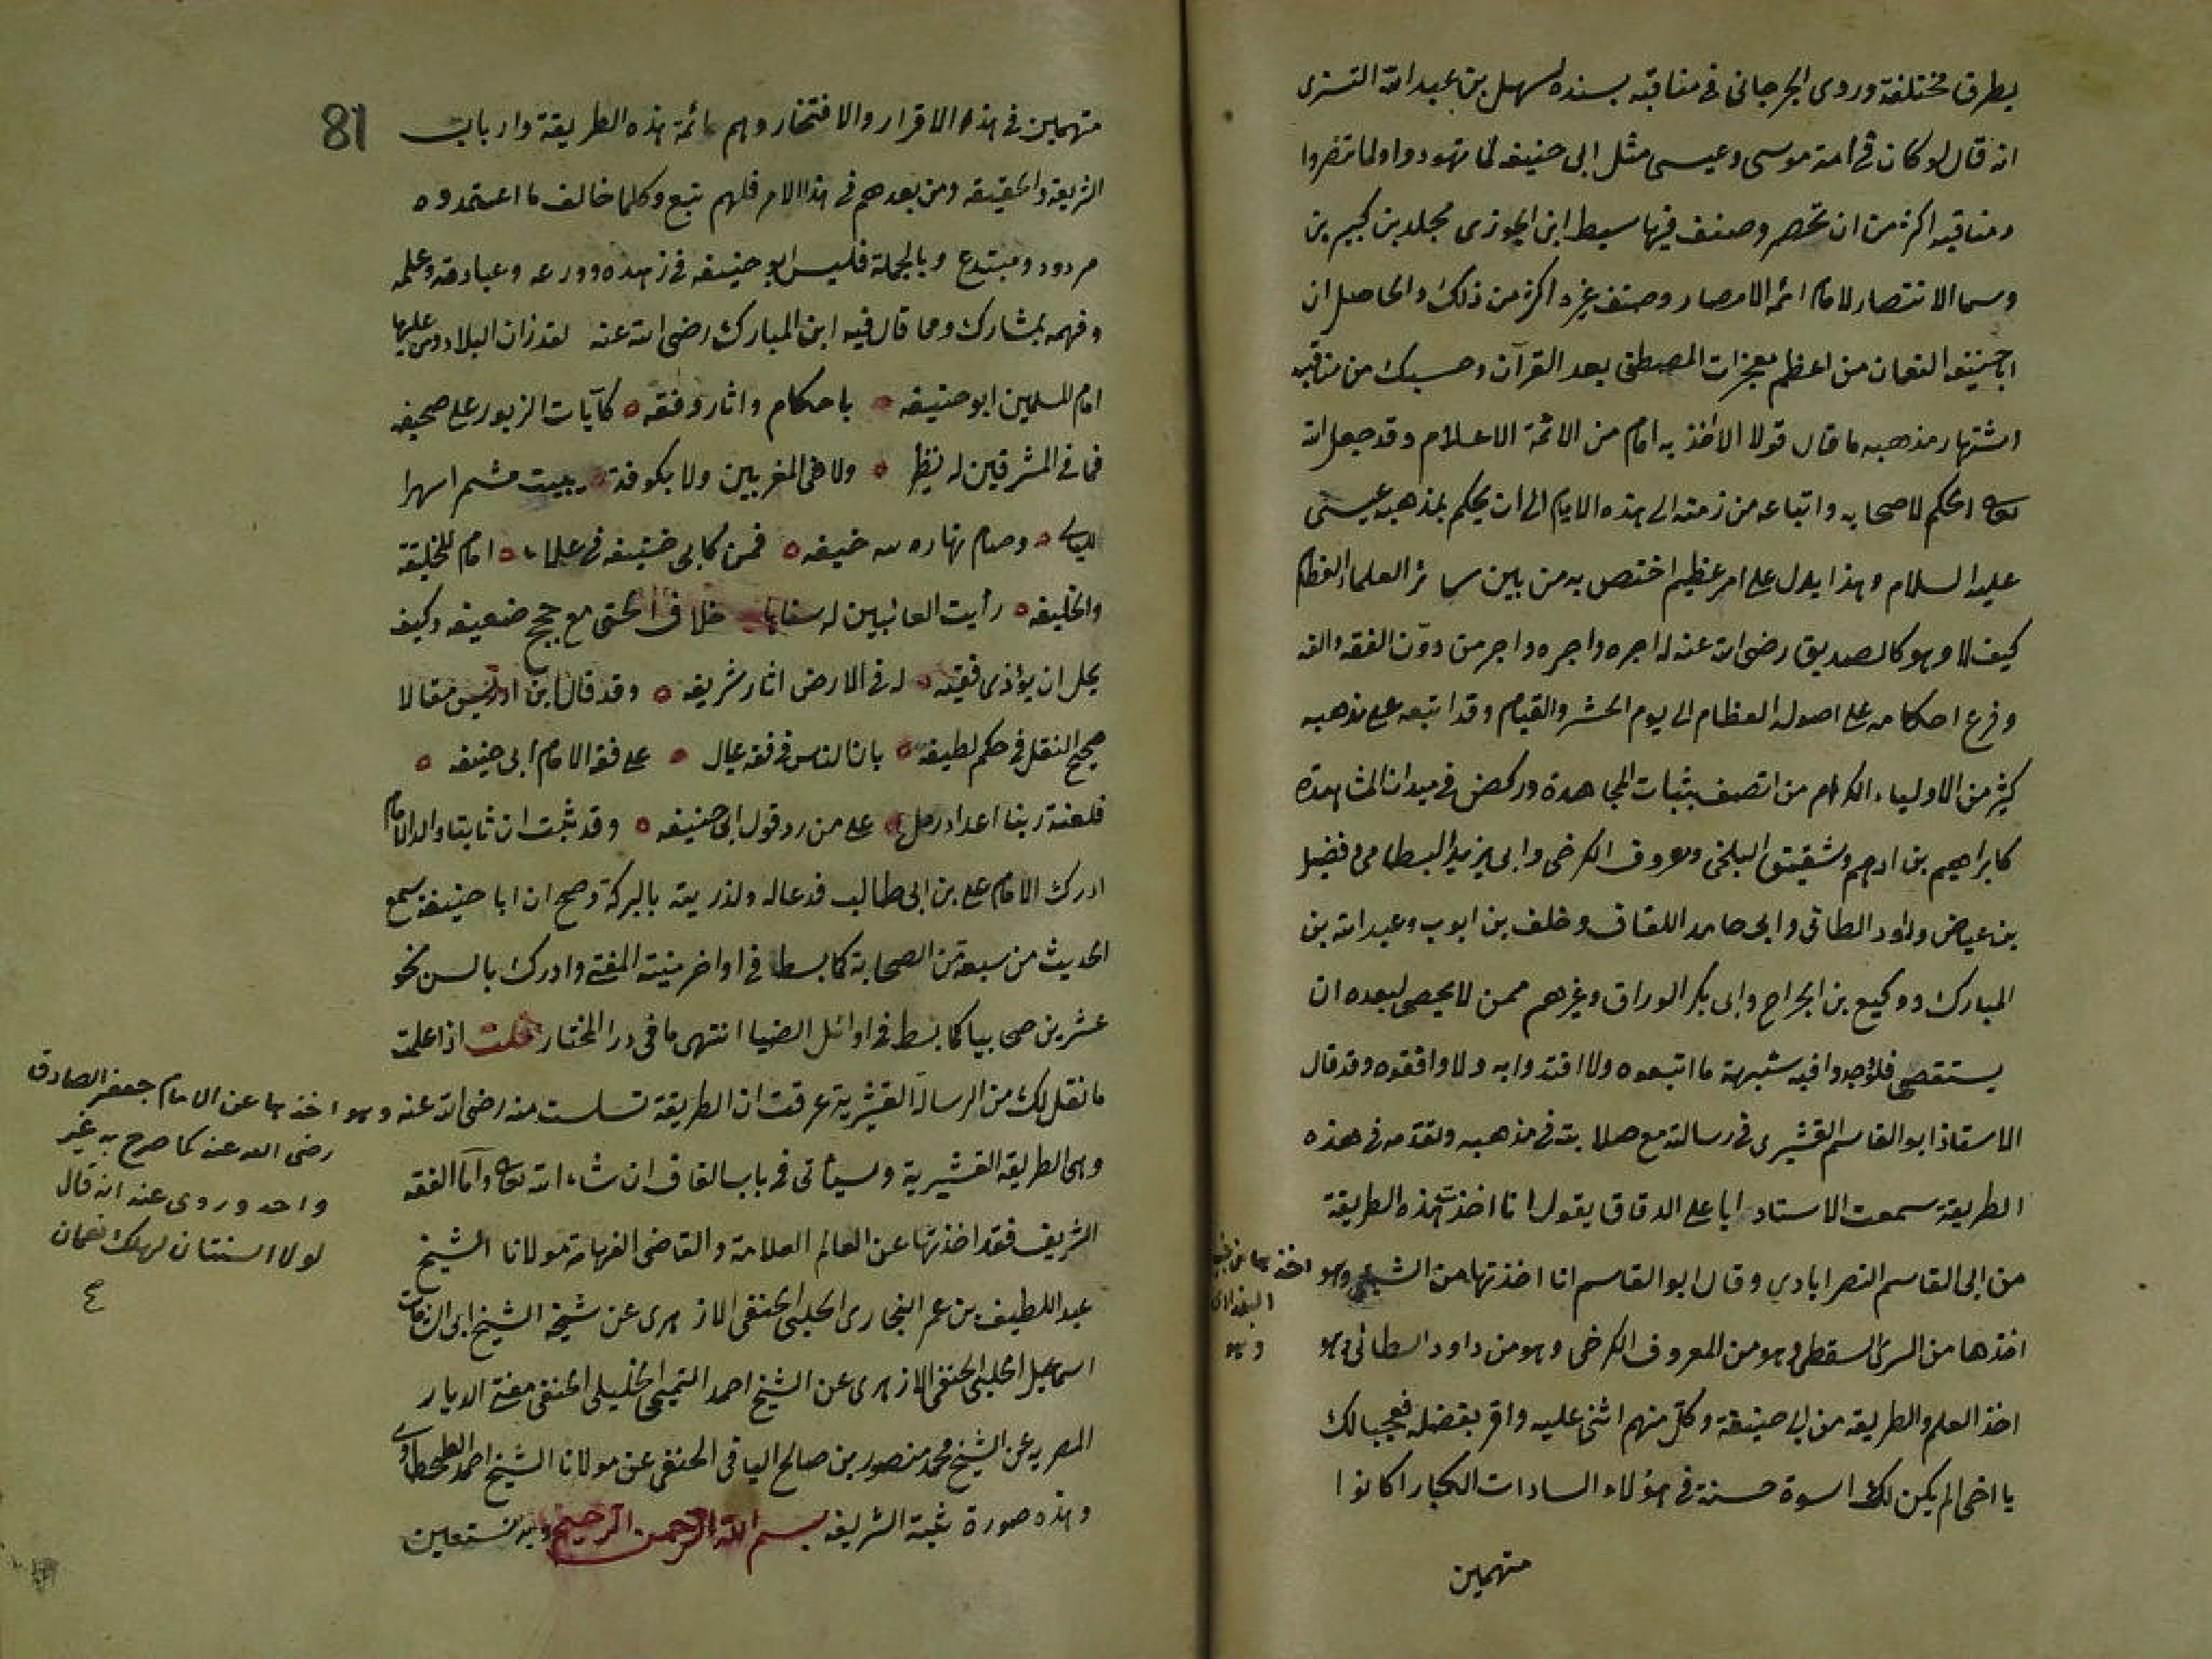 بطرق مختلفة وروى الجرجاني في مناقبه بسنده لسهل بن عبد الله التستري
انه قال لو كان في امة موسى وعيسى مثل ابى حنيفه لما تهودوا ولما تنصروا
ومناقبه اكثر من ان تحصر وصنف فيها سبط ابن الجوزى مجلدين كبيرين
وسماه الانتصار لامام ائمه الامصار وصنف غيره اكثر من ذلك والحاصل ان
اباحنيفه النعمان من اعظم معجزات المصطفى بعد القرآن وحسبك من مناقبه
اشتهار مذهبه ما قال قولا الا اخذ به امام من الائمة الاعلام وقد جعل الله
الحكم لاصحابه واتباعه من زمنه الى هذه الايام الى ان يحكم بمذهبه عيسى
عليه السلام وهذا يدل على امر عظيم اختص به من بين سائر العلماء العظام
كيف لا وهو كالصديق رضى الله عنه له اجره واجر من دوّن الفقه والفه
وفرع احكامه على اصوله العظام الى يوم الحشر والقيام وقد اتبعه على مذهبه
كثير من الاولياء الكرام من اتصف بثبات المجاهدة وركض في ميدان المشاهدة
كابراهيم بن ادهم وشقيق البلخى ومعروف الكرخى وابى يزيد البسطامى وفضيل
بن عياض وداود الطائى وابى حامد اللفاف وخلف بن ايوب وعبد الله بن
المبارك ووكيع بن الجراح وابى بكر الوراق وغيرهم ممن لا يحصى لبعده ان
يستقصى فلو وجدوا فيه شبهة ما اتبعوه ولا اقتدوا به ولا وافقوه وقد قال
الاستاذ ابو القاسم القشيرى في رسالته مع صلابته في مذهبه وتقدمه في هذه
الطريقة سمعت الاستاد ابا على الدقاق يقول انا اخذت هذه الطريقة
من ابى القاسم النصرابادي وقال ابو القاسم انا اخذتها من الشبلي وهو اخذها من
اخذها من السرى السقطى وهو من المعروف الكرخى وهو من داود الطائى وهو
اخذ العلم والطريقه من ابى حنيفة وكل منهم اثنى عليه واقر بفضله فعجبا لك
يا اخى الم يكن لك اسوة حسنة في هؤلاء السادات الكبار اكانوا
متهمين
81
متهمين في هذا الاقرار والافتخار وهم ائمة هذه الطريقة وارباب
الشريعه والحقيقه ومن بعدهم في هذا الامر فلهم تبع وكلما خالف ما اعتمدوه
مردود ومبتدع وبالجملة فليس ابو حنيفه في زهده وورعه وعبادته وعلمه
وفهمه بمشارك ومما قال فيه ابن المبارك رضى الله عنه لقد زان البلاد ومن عليها
امام المسلمين ابو حنيفه باحكام واثار وفقه كآيات الزبور على صحيفه
فما في المشرقين له نظير ولا في المغربين ولا بكوفة يبيت مشمرا سهرا
الليالى وصام نهاره لله خيفه فمن كابى حنيفه في علاه امام للخليقة
والخليفه رأيت العائبين له سفاها خلاف الحق مع حجج ضعيفه وكيف
يحل ان يؤذى فقيه له في الارض اثار شريفه وقد قال ابن ادريس مقالا
صحيح النقل في حكم لطيفه بان الناس في فقه عيال على فقه الامام ابى حنيفه
فلعنة ربنا اعداد رمل على من رد قول ابى حنيفه وقد ثبت ان ثابتا والد الامام
ادرك الامام على بن ابى طالب فدعا له ولذريته بالبركة وصح ان ابا حنيفة سمع
الحديث من سبعة من الصحابة كما بسط في اواخر منية المفتى وادرك بالسن نحو
عشرين صحابيا كما بسط في اوائل الضيا انتهى ما في در المختار قلت اذا علمت
ما نقل لك من الرسالة القشيرية عرفت ان الطريقة تسلسلت منه رضى الله عنه وهو اخذها عن الامام جعفر الصادق
رضى الله عنه كما صرح به غير
واحد وروى عنه انه قال
لولا السنتان لهلك نعمان
وهى الطريقه القشيرية وسيأتى في باب القاف ان شاء الله تعالى واما الفقه
الشريف فقد اخذتها عن العالم العلامة والقاضى الفهامة مولانا الشيخ
عبد اللطيف بن عمر البخارى الحلبى الحنفى الازهرى عن شيخه الشيخ ابى البركات
اسماعيل الحلبى الحنفى الازهرى عن الشيخ احمد التميمى الخليلى الحنفى مفتى الديار
المصريه عن الشيخ محمد منصور بن صالح اليافى الحنفى عن مولانا الشيخ احمد الطحطاوى
وهذه صورة ثبته الشريف بسم الله الرحمن الرحيم وبه نستعين